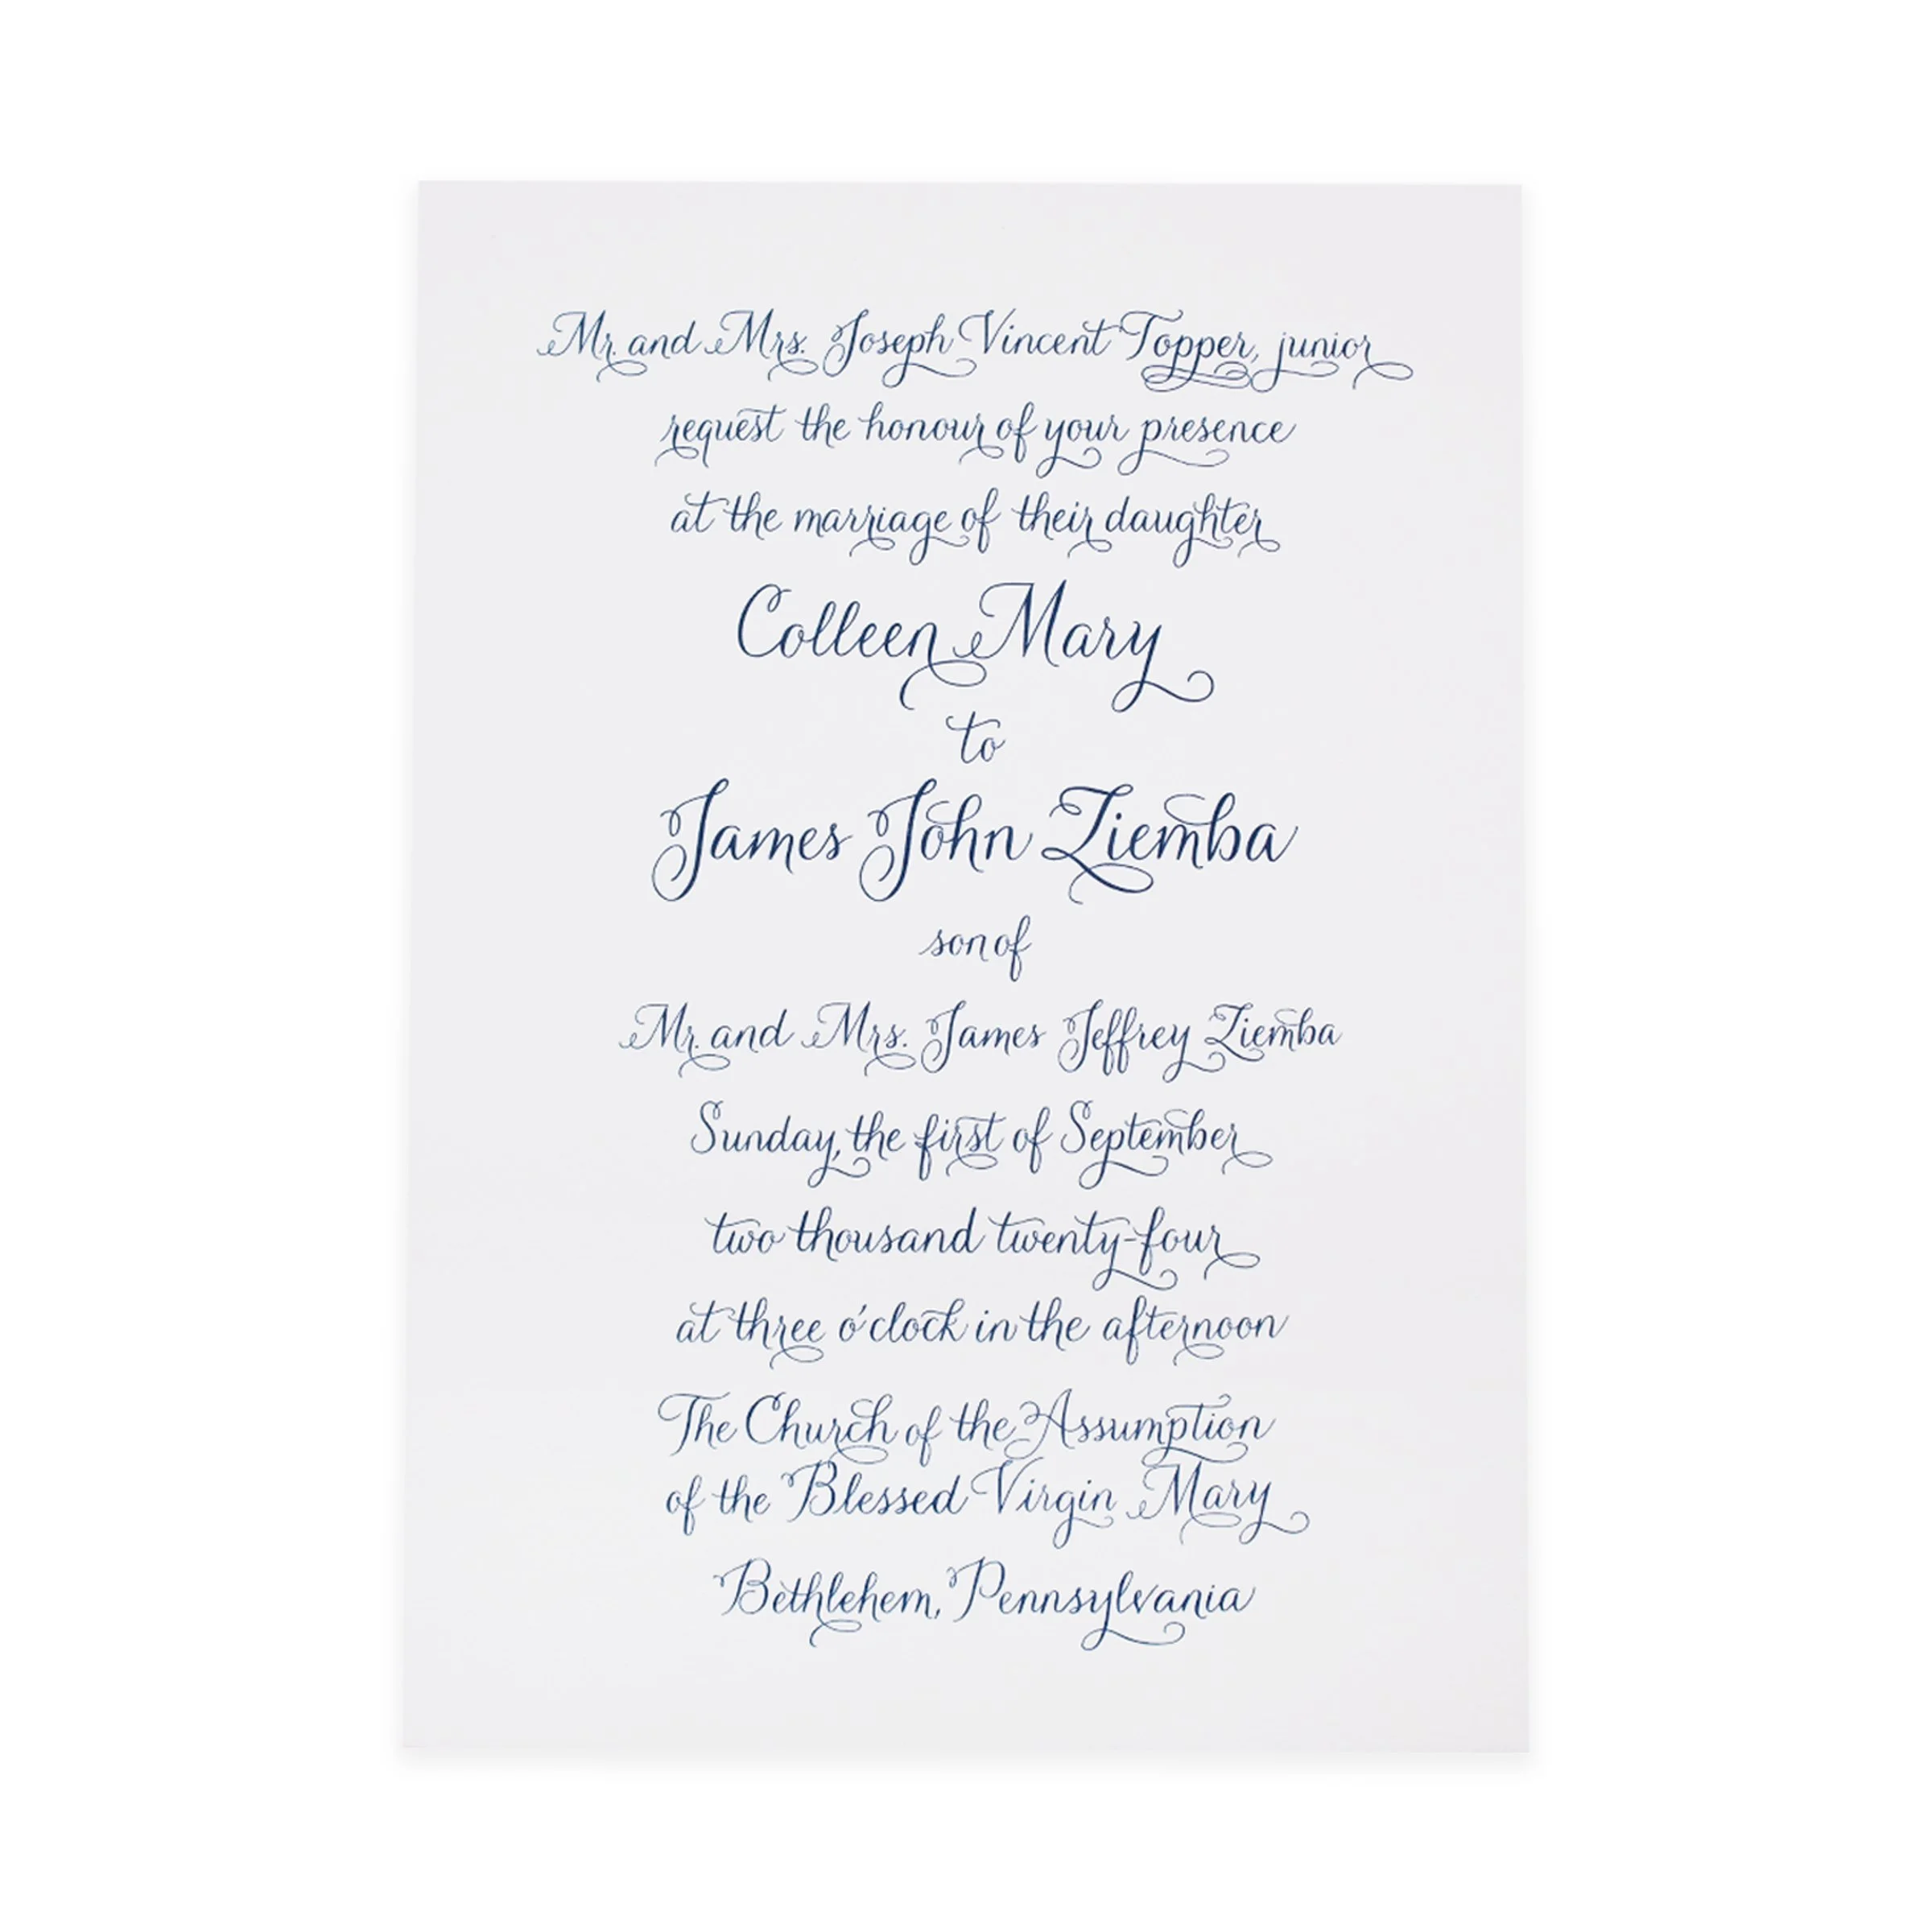 Mr. and Mrs. Joseph Vincent Topper, junior
request the honour of your presence
at the marriage of their daughter
Colleen Mary
to
James John Ziemba
son of
Mr. and Mrs. James Jeffrey Ziemba
Sunday, the first of September
two thousand twenty-four
at three o'clock in the afternoon
The Church of the Assumption
of the Blessed Virgin Mary
Bethlehem, Pennsylvania